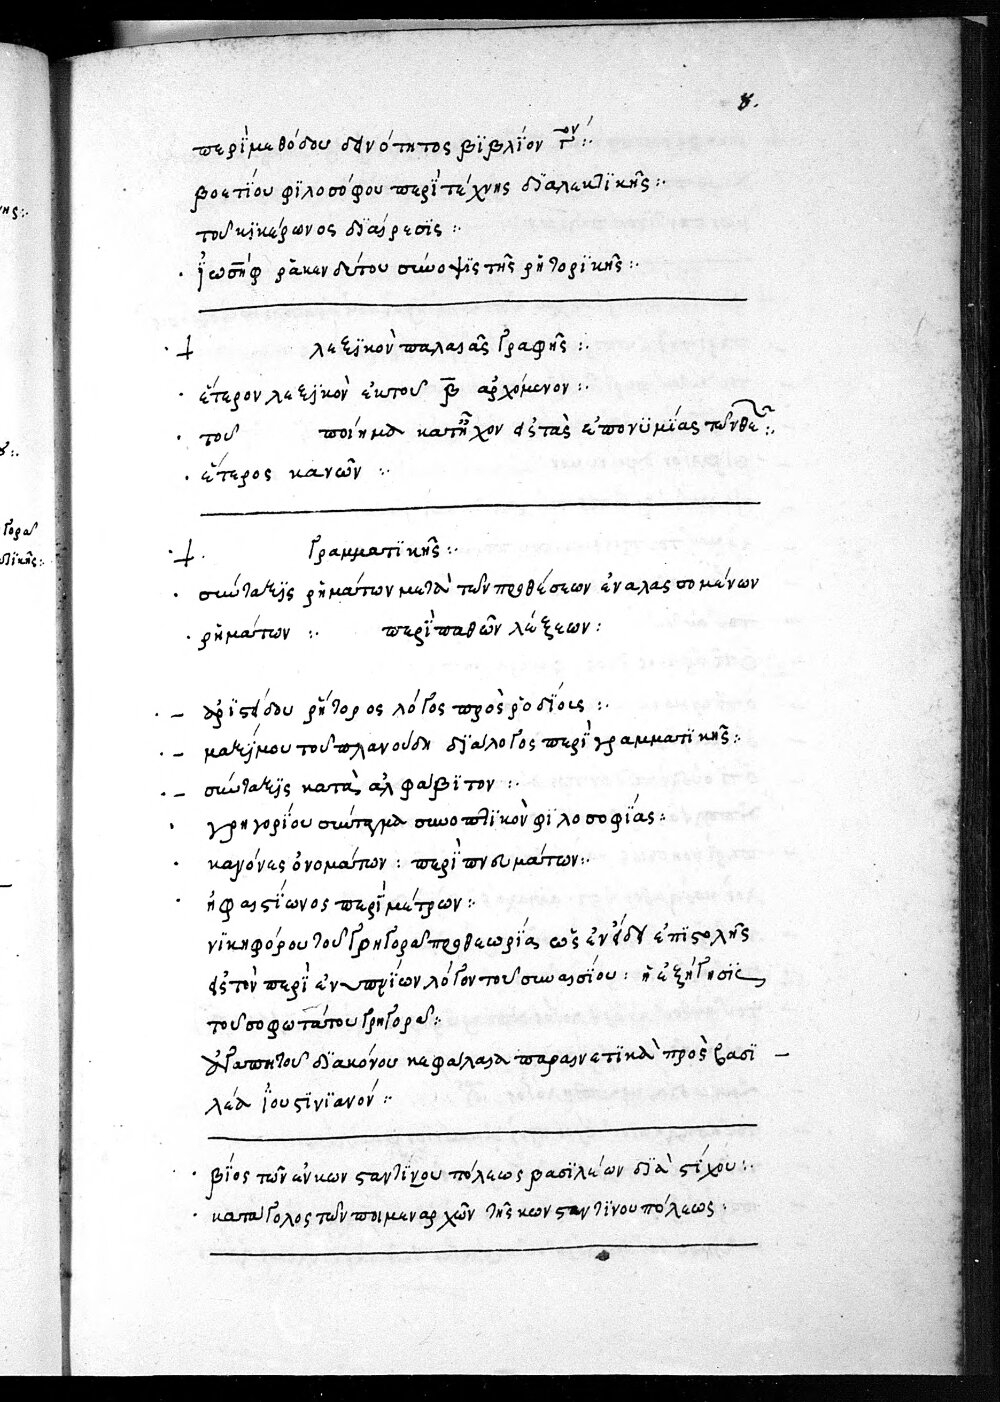 8.
περὶ μεθόδου δεινότητος βιβλίον γ̅ον :·
βοετίου φιλοσόφου περὶ τέχνης διαλεκτικῆς :·
τοῦ κικέρωνος διαίρεσις :·
· ἰωσὴφ ῥακενδύτου σύνοψις τῆς ῥητορικῆς :·
λεξικὸν παλαιᾶς γραφῆς :·
· ἕτερον λεξικὸν ἐκ τοῦ β̅ ἀρχόμενον :·
· τοῦ ποίημα κατῆχον εἰς τὰς ἐπονυμίας τῶν θε :·
· ἕτερος κανὼν :·
γραμματικῆς :·
· σύνταξις ῥημάτων μετὰ τῶν προθέσεων ἐναλασσομένων
· ῥημάτων :· περὶ παθῶν λέξεων :
· – ἀριστείδου ῥήτορος λόγος πρὸς ῥοδίους :·
· – μαξίμου τοῦ πλανούδη διάλογος περὶ γραμματικῆς :·
· – σύνταξις κατὰ ἀλφάβιτον :·
· γρηγορίου σύνταγμα συνοπτικὸν φιλοσοφίας :·
· κανόνες ὀνομάτων : περὶ πνευμάτων :·
· ἡφαιστίωνος περὶ μέτρων :·
νικηφόρου τοῦ γρηγορᾶ προθεωρία ὡς ἐν εἴδει ἐπιστολῆς
εἰς τὸν περὶ ἐνυπνίων λόγον τοῦ συνεσίου : ἡ ἐξήγησις
τοῦ σοφωτάτου γρηγορᾶ :·
ἀγαπητοῦ διακόνου κεφάλαια παραινετικὰ πρὸς βασι –
λέα ἰουστινιανόν :·
· βίος τῶν ἐν κωνσταντίνου πόλεως βασιλέων διὰ στίχου :·
· κατάλογος τῶν ποιμεναρχῶν τῆς κωνσταντίνου πόλεως :·